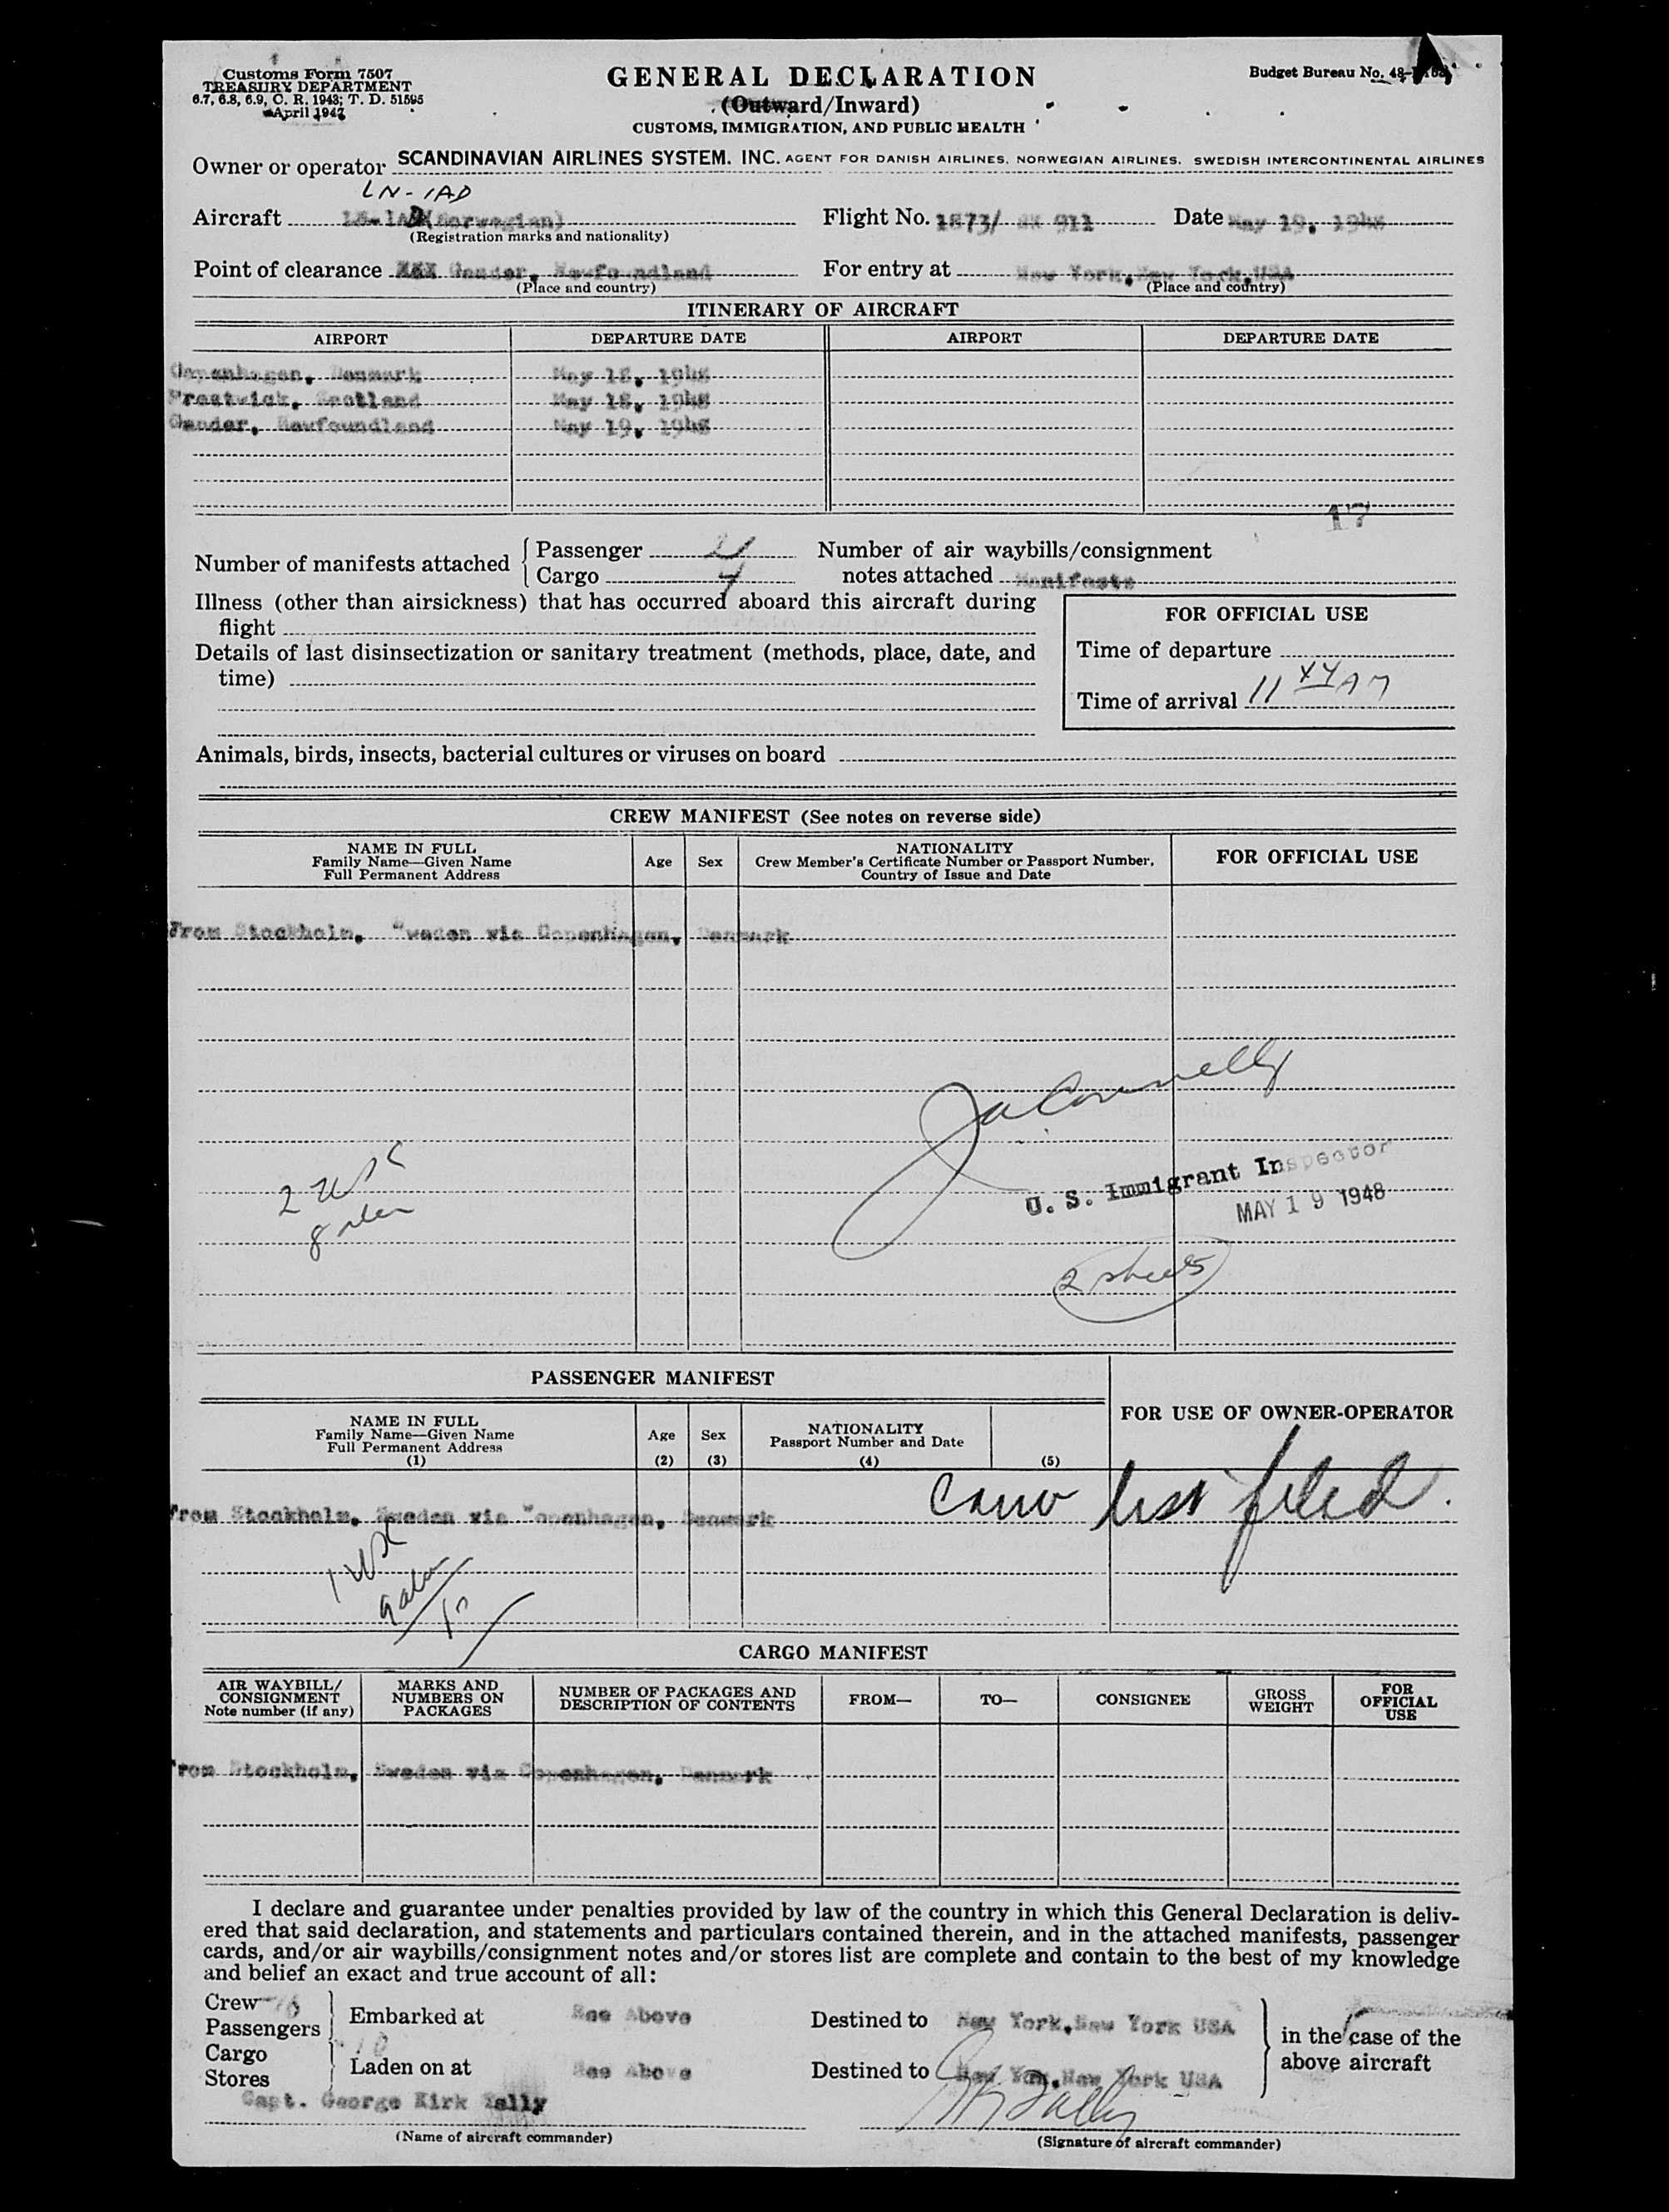 Customs Form 7507
TREASURY DEPARTMENT
6.7, 6.8, 6.9, C. R. 1943; T. D. 51595
April 1947
GENERAL DECLARATION
(Outward/Inward)
CUSTOMS, IMMIGRATION, AND PUBLIC HEALTH
Budget Bureau No. 48-
Owner or operator SCANDINAVIAN AIRLINES SYSTEM. INC. AGENT FOR DANISH AIRLINES. NORWEGIAN AIRLINES. SWEDISH INTERCONTINENTAL AIRLINES
LN-IAD
Aircraft (Norwegian) Flight No. 1873/ SK 911 Date May 19, 1948
(Registration marks and nationality)
Point of clearance XXX Gander, Newfoundland For entry at New York, New York, USA
(Place and country) (Place and country)
ITINERARY OF AIRCRAFT
AIRPORT DEPARTURE DATE AIRPORT DEPARTURE DATE
Copenhagen, Denmark May 18, 1948
Prestwick, Scotland May 18, 1948
Gander, Newfoundland May 19, 1948
17
Number of manifests attached Passenger Number of air waybills/consignment
Cargo notes attached Manifests
Illness (other than airsickness) that has occurred aboard this aircraft during
flight
FOR OFFICIAL USE
Details of last disinsectization or sanitary treatment (methods, place, date, and
time)
Time of departure
Time of arrival 11 AM
Animals, birds, insects, bacterial cultures or viruses on board
CREW MANIFEST (See notes on reverse side)
NAME IN FULL
Family Name—Given Name
Full Permanent Address
Age Sex
NATIONALITY
Crew Member's Certificate Number or Passport Number,
Country of Issue and Date
FOR OFFICIAL USE
From Stockholm, Sweden via Copenhagen, Denmark
Ja Connelly
U. S. Immigrant Inspector
MAY 19 1948
2
8
2 sheets
PASSENGER MANIFEST
FOR USE OF OWNER-OPERATOR
NAME IN FULL
Family Name—Given Name
Full Permanent Address
(1)
Age
(2)
Sex
(3)
NATIONALITY
Passport Number and Date
(4)
(5)
list filed.
From Stockholm, Sweden via Copenhagen, Denmark
CARGO MANIFEST
AIR WAYBILL/
CONSIGNMENT
Note number (if any)
MARKS AND
NUMBERS ON
PACKAGES
NUMBER OF PACKAGES AND
DESCRIPTION OF CONTENTS
FROM—
TO—
CONSIGNEE
GROSS
WEIGHT
FOR
OFFICIAL
USE
From Stockholm, Sweden via Copenhagen, Denmark
I declare and guarantee under penalties provided by law of the country in which this General Declaration is deliv-
ered that said declaration, and statements and particulars contained therein, and in the attached manifests, passenger
cards, and/or air waybills/consignment notes and/or stores list are complete and contain to the best of my knowledge
and belief an exact and true account of all:
Crew
Passengers
Cargo
Stores
Embarked at See Above Destined to New York, New York USA
Laden on at See Above Destined to New York, New York USA
in the case of the
above aircraft
Capt. George Kirk Lally
(Name of aircraft commander)
GK Lally
(Signature of aircraft commander)